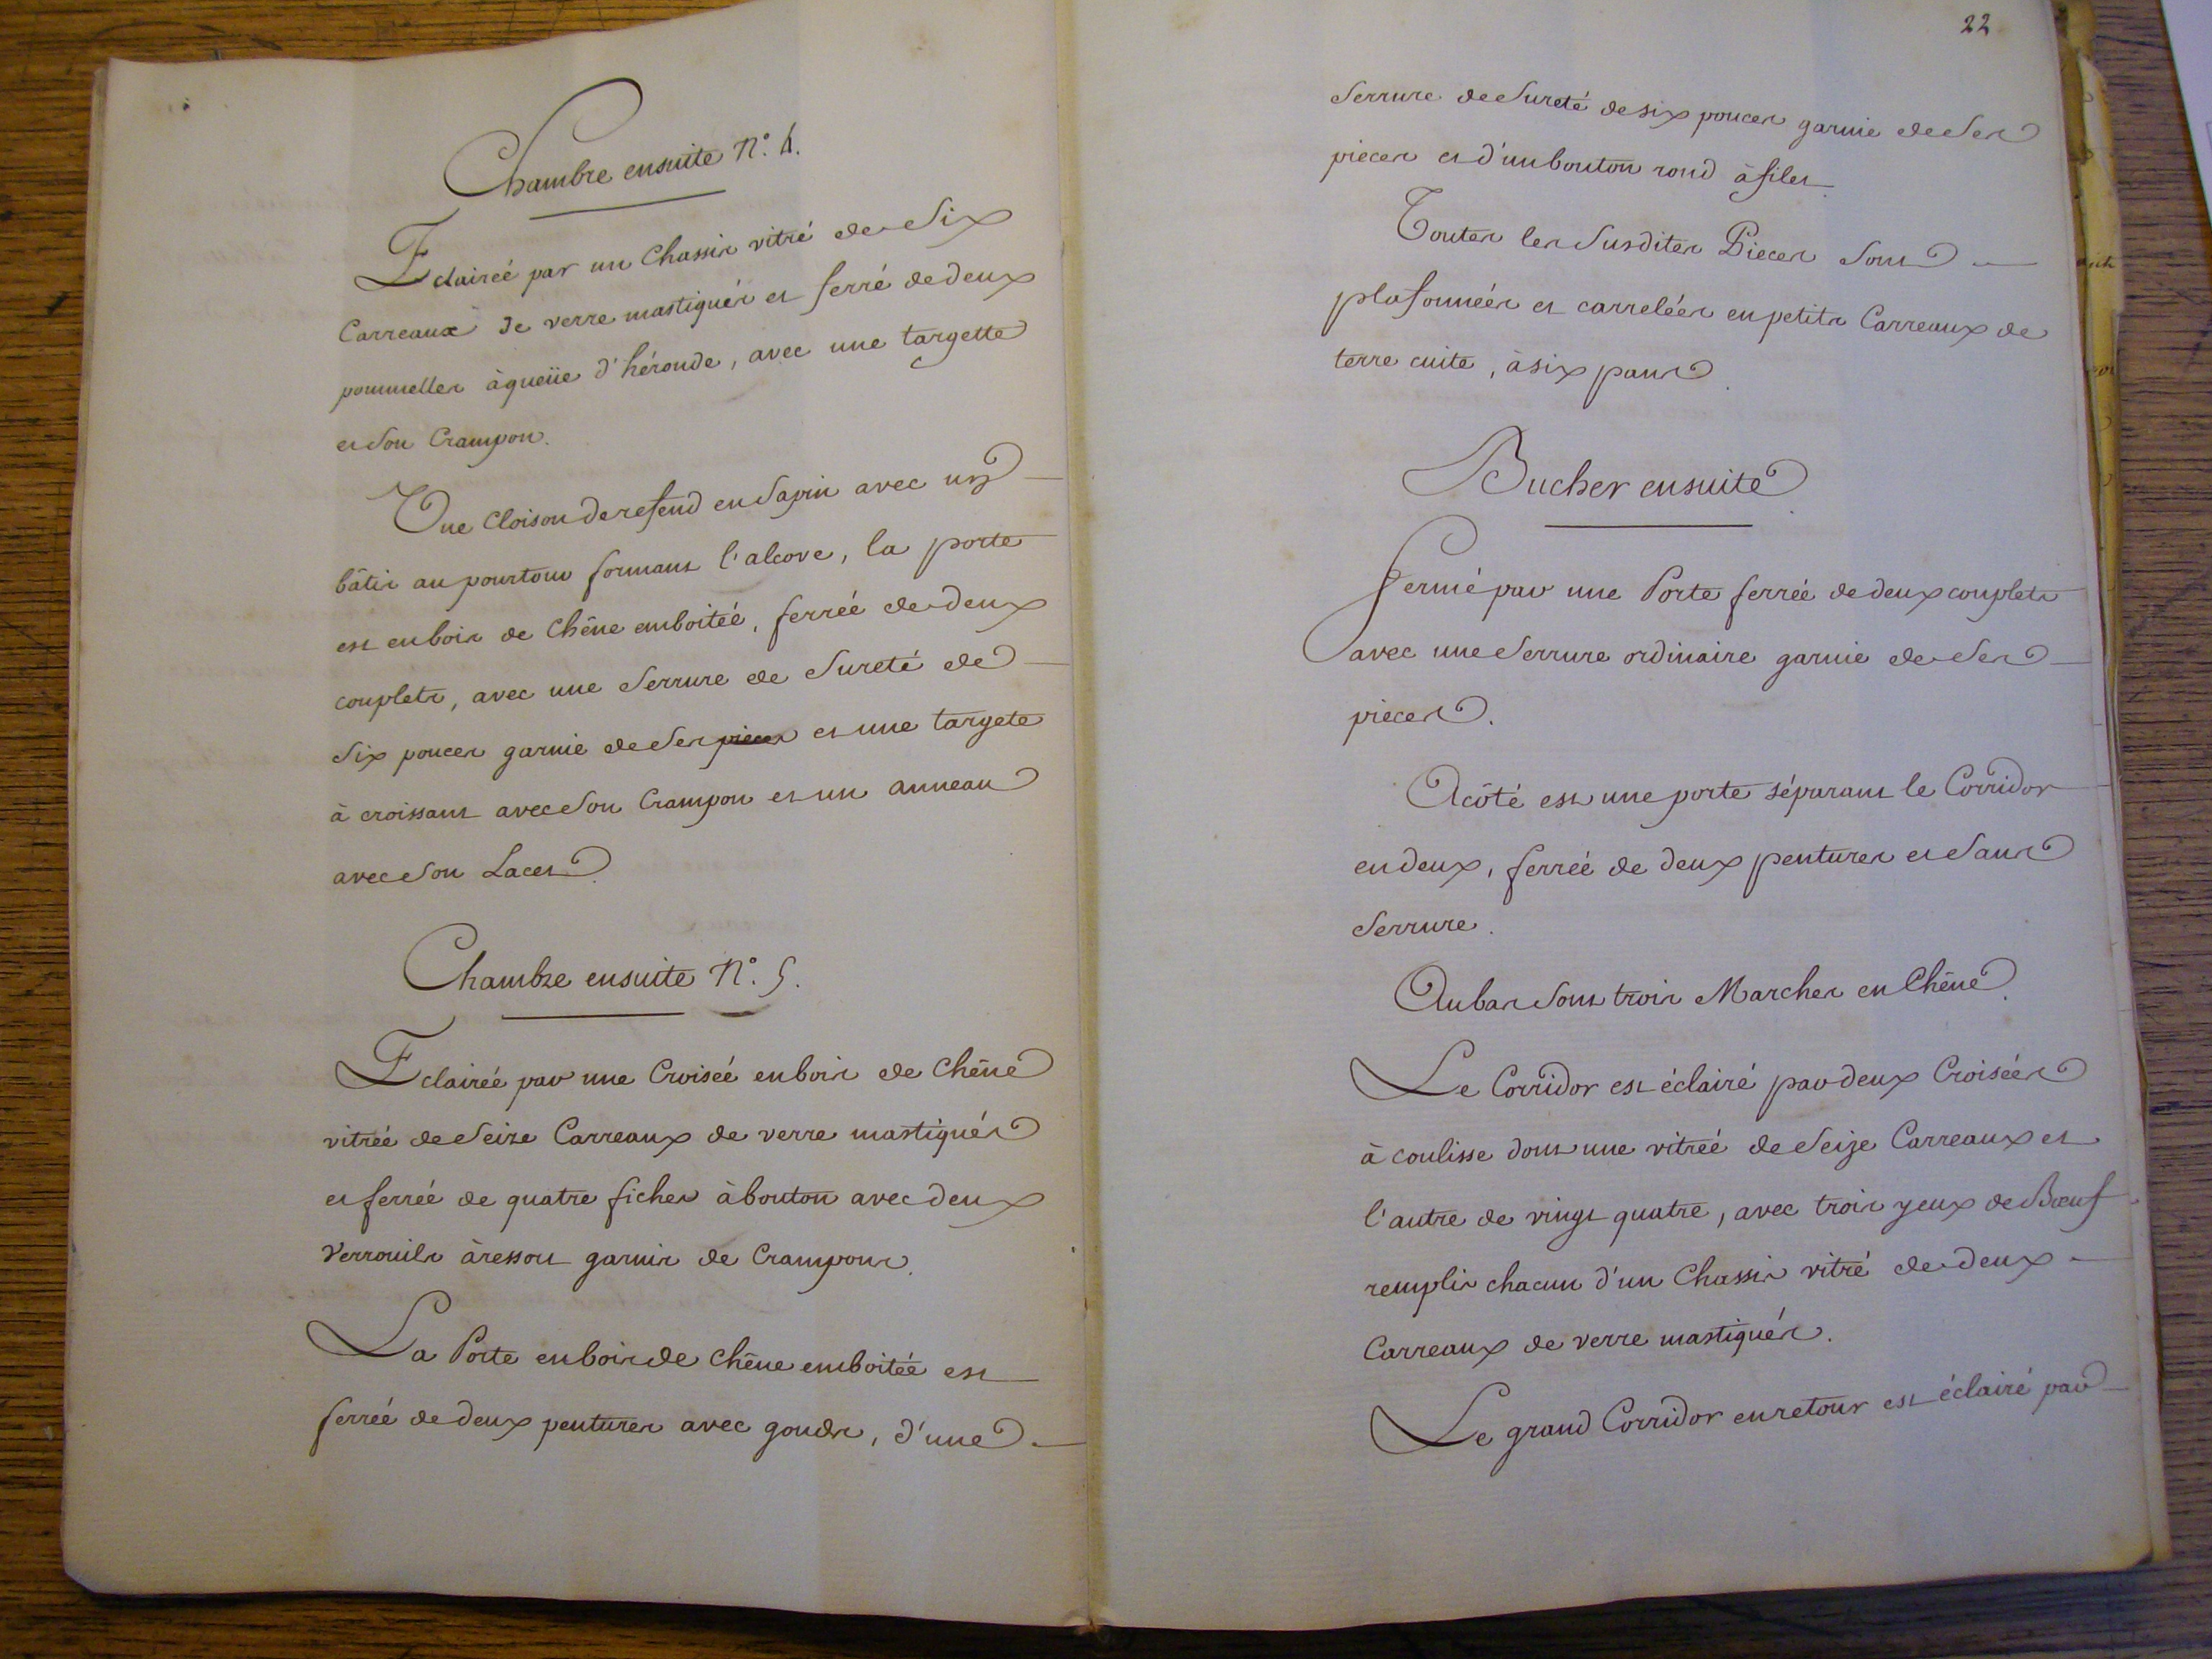 Chambre ensuite N.° 4.
Eclaireé par un Chassis vitré de Six
Carreaux de verre mastiqués et ferré de deux
pommelles à queüe d'héronde, avec une targette
et Son Crampon.
Une Cloison de refend en Sapin avec un
bâtis au pourtour formant l'alcove, la porte
est en bois de Chêne emboiteé, ferreé de deux
couplets, avec une Serrure de Sureté de
Six pouces garnie de Ses pieces et une targete
à croissant avec Son Crampon et un anneau
avec Son Lacet.
Chambre ensuite N.° 5.
Eclaireé par une Croiseé en bois de Chêne
vitreé de Seize Carreaux de verre mastiqués
et ferreé de quatre fiches à bouton avec deux
Verrouils à ressort garnis de Crampons.
La Porte en bois de Chêne emboiteé est
ferreé de deux pentures avec gonds, d'une
22
Serrure de Sureté de six pouces garnie de Ses
pieces et d'un bouton rond à filet.
Toutes les Susdites Pieces Sont
plafonneés et carreleés en petits Carreaux de
terre cuite, à six pans.
Bucher ensuite.
Fermé par une Porte ferrée de deux couplets
avec une Serrure ordinaire garnie de Ses
pieces.
A côté est une porte séparant le Corridor
en deux, ferreé de deux pentures et Sans
Serrure.
Au bas Sont trois Marches en Chêne.
Le Corridor est éclairé par deux Croiseés
à coulisse dont une vitreé de Seize Carreaux et
l'autre de vingt quatre, avec trois yeux de Bœuf
remplis chacun d'un Chassis vitré de deux
Carreaux de verre mastiqués.
Le grand Corridor en retour est éclairé par